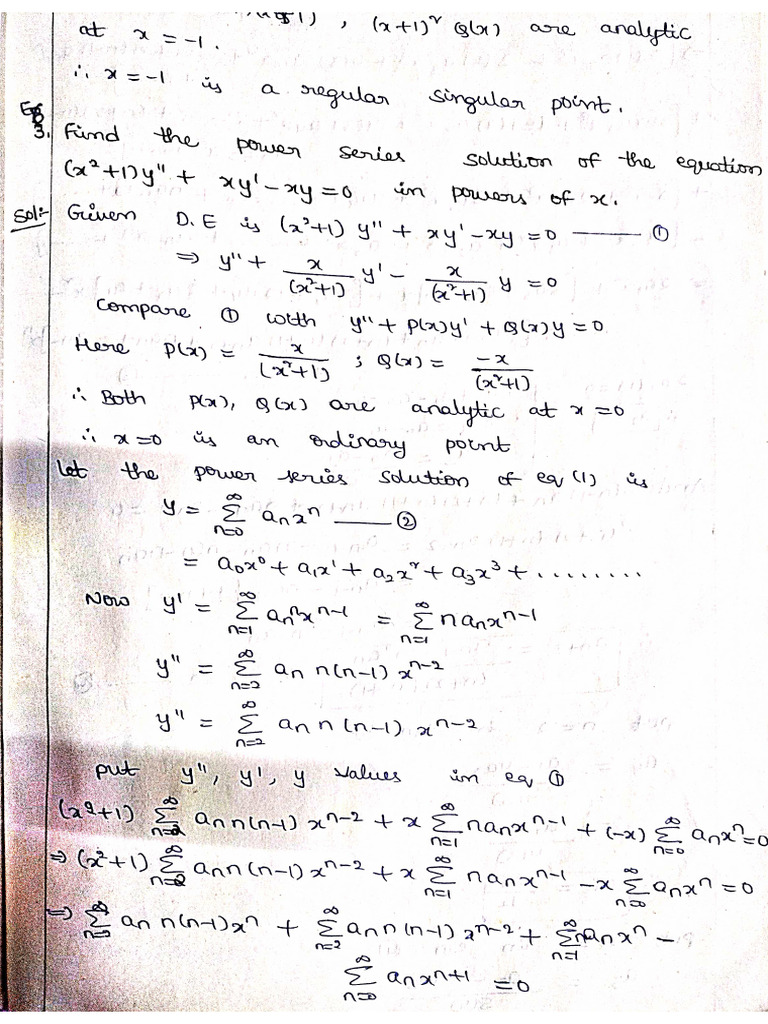 , (x+1)² Q(x) are analytic
at x = -1.
∴ x = -1 is a regular singular point.
3. Find the power series solution of the equation
(x²+1)y'' + xy' - xy = 0 in powers of x.
Sol:- Given D.E is (x²+1) y'' + xy' - xy = 0 ——— ①
⇒ y'' + x/(x²+1) y' - x/(x²+1) y = 0
Compare ① with y'' + P(x)y' + Q(x)y = 0
Here P(x) = x/(x²+1) ; Q(x) = -x/(x²+1)
∴ Both P(x), Q(x) are analytic at x = 0
∴ x = 0 is an ordinary point
Let the power series solution of eq (1) is
y = ∑_{n=0}^{∞} aₙxⁿ ——— ②
= a₀x⁰ + a₁x¹ + a₂x² + a₃x³ + ........
Now y' = ∑_{n=1}^{∞} aₙnxⁿ⁻¹ = ∑_{n=1}^{∞} n aₙxⁿ⁻¹
y'' = ∑_{n=2}^{∞} aₙ n(n-1) xⁿ⁻²
y'' = ∑_{n=2}^{∞} aₙ n (n-1) xⁿ⁻²
put y'', y', y values in eq ①
(x²+1) ∑_{n=2}^{∞} aₙ n(n-1) xⁿ⁻² + x ∑_{n=1}^{∞} naₙxⁿ⁻¹ + (-x) ∑_{n=0}^{∞} aₙxⁿ = 0
⇒ (x²+1) ∑_{n=2}^{∞} aₙn(n-1)xⁿ⁻² + x ∑_{n=1}^{∞} n aₙxⁿ⁻¹ - x ∑_{n=0}^{∞} aₙxⁿ = 0
⇒ ∑ aₙ n(n-1)xⁿ + ∑_{n=2}^{∞} aₙ n (n-1) xⁿ⁻² + ∑_{n=1}^{∞} naₙxⁿ -
∑_{n=0}^{∞} aₙxⁿ⁺¹ = 0